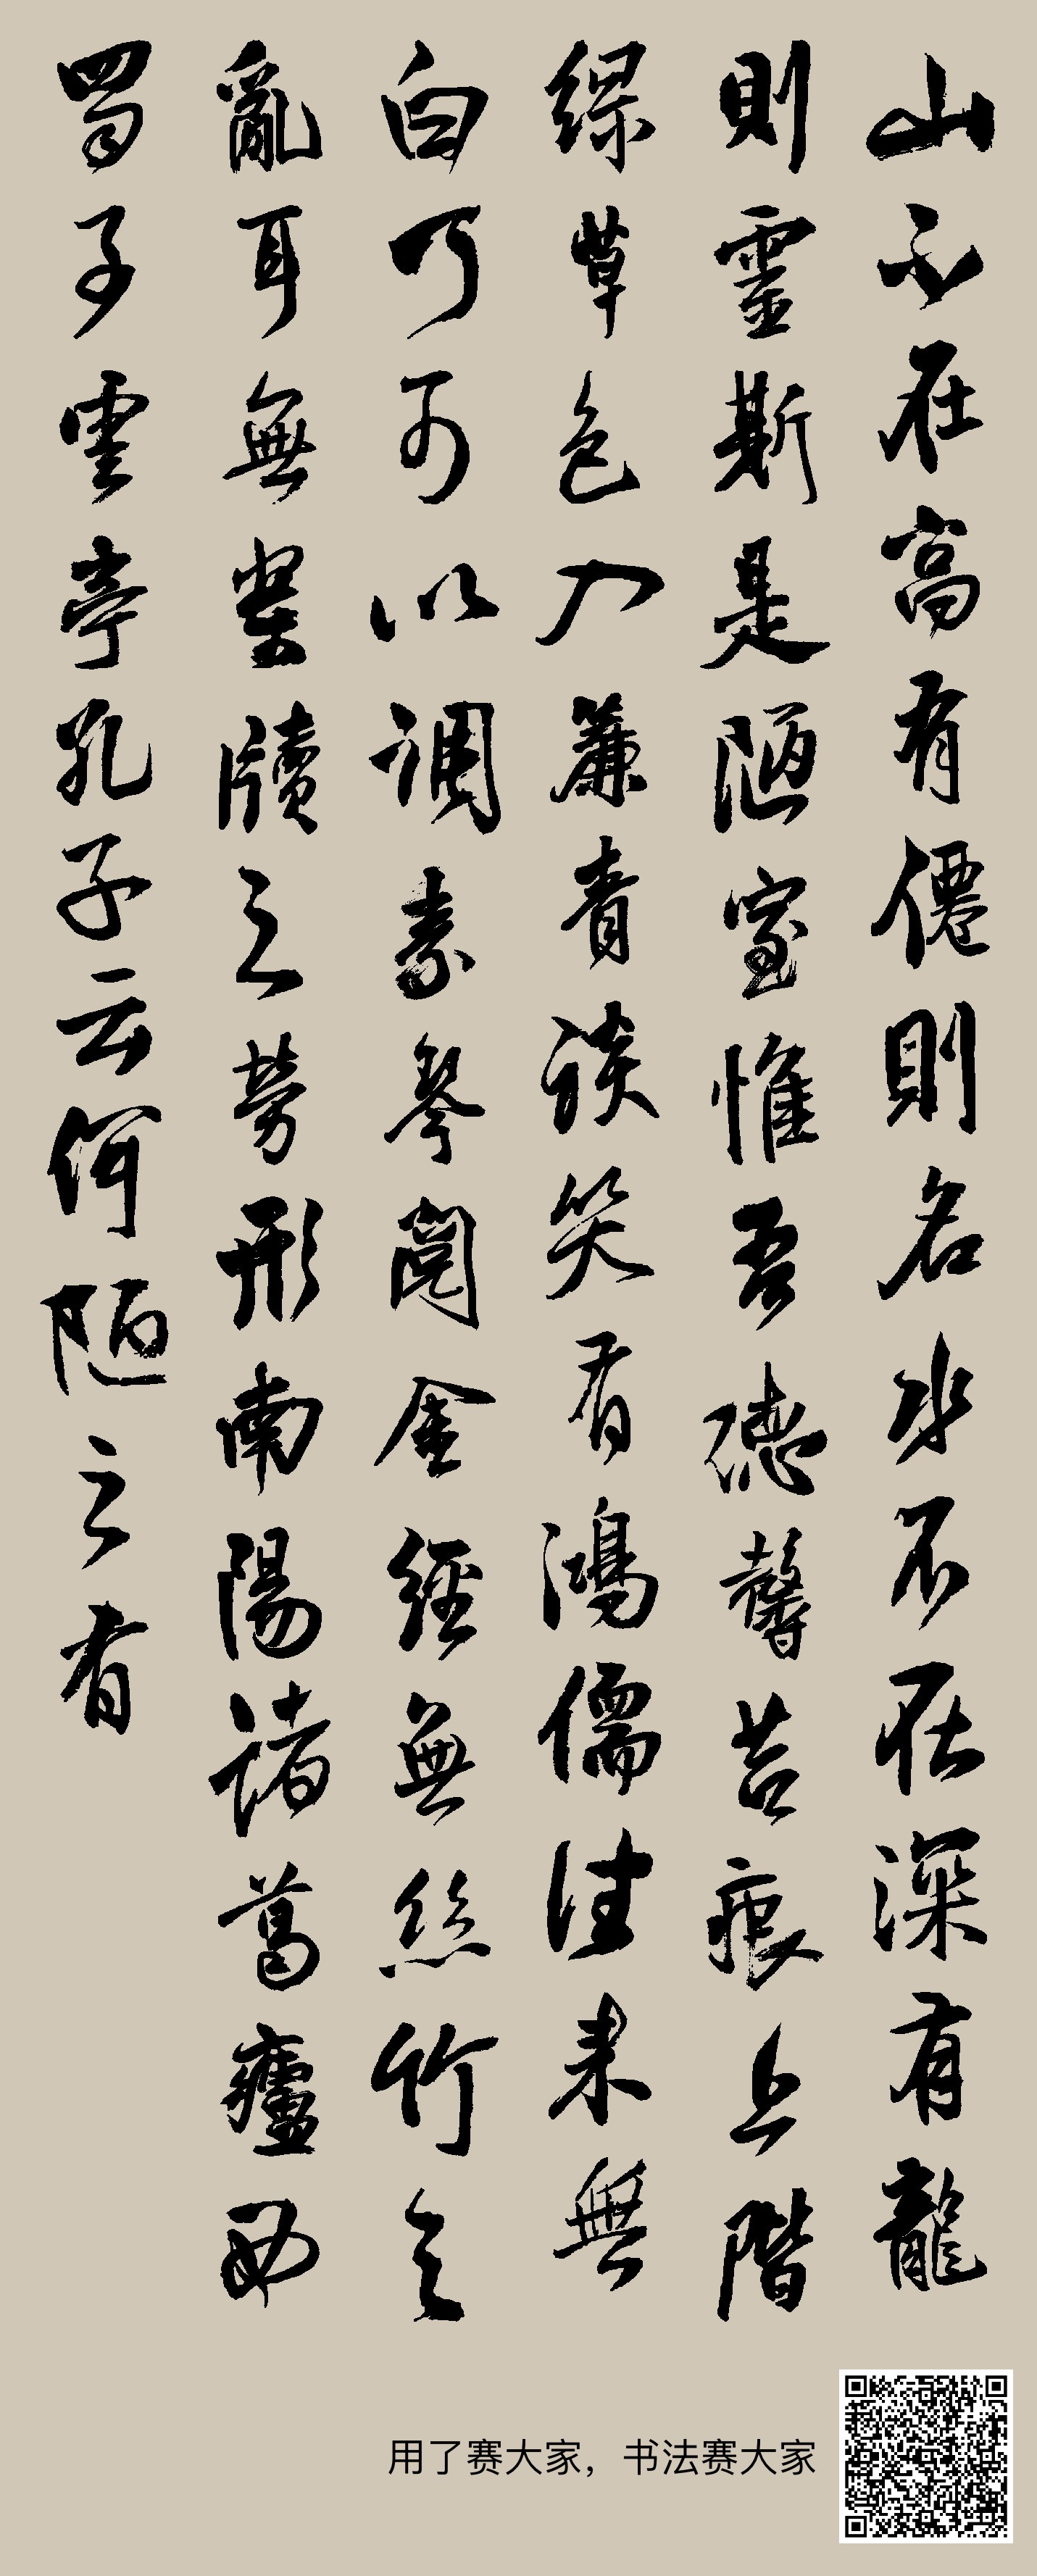 山不在高有僊則名水不在深有龍
則靈斯是陋室惟吾德馨苔痕上階
綠草色入簾青談笑有鴻儒往来無
白丁可以調素琴閱金經無絲竹之
亂耳無案牘之勞形南陽諸葛廬西
蜀子雲亭孔子云何陋之有
用了赛大家，书法赛大家